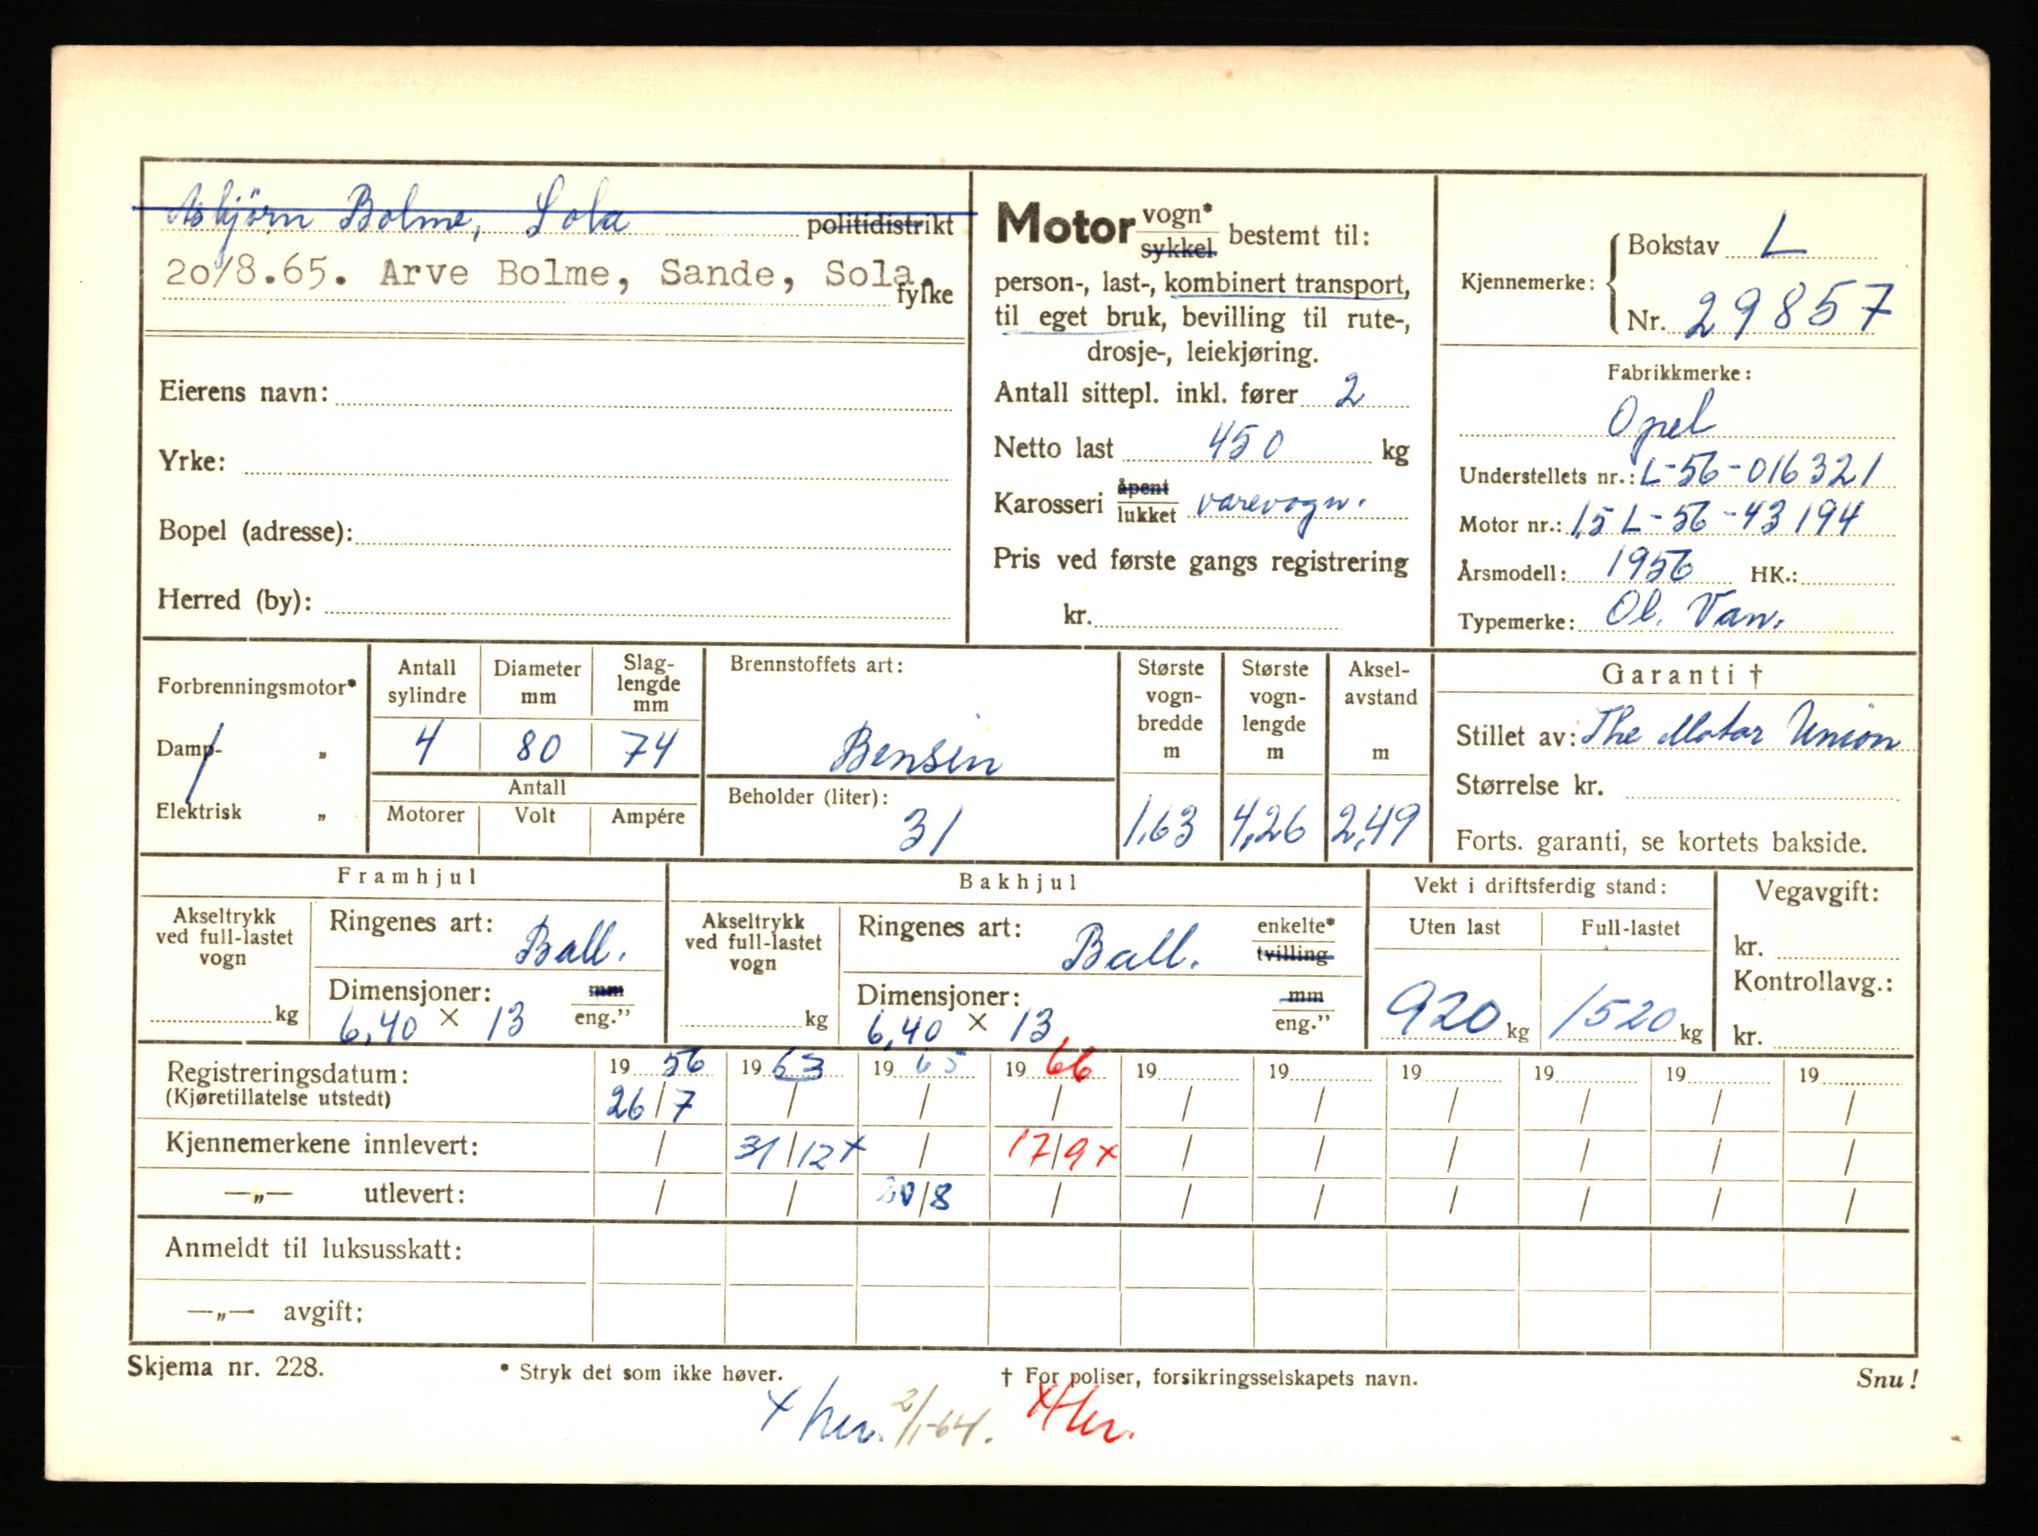 Asbjörn Bolme, Sola politidistrikt
20/8.65. Arve Bolme, Sande, Sola.
fylke
Eierens navn:
Yrke:
Bopel (adresse):
Herred (by):
Motor vogn* sykkel bestemt til:
person-, last-, kombinert transport,
til eget bruk, bevilling til rute-,
drosje-, leiekjøring.
Antall sittepl. inkl. fører 2
Netto last 450 kg
Karosseri åpent lukket varevogn.
Pris ved første gangs registrering
kr.
Kjennemerke:
Bokstav L
Nr. 29857
Fabrikkmerke:
Opel
Understellets nr.: L-56-016321
Motor nr.: 1,5 L-56-43194
Årsmodell: 1956 HK.:
Typemerke: Ol. Van.
Forbrenningsmotor*
Damp- „
Elektrisk „
Antall sylindre
Diameter mm
Slag-lengde mm
4 80 74
Antall
Motorer Volt Ampére
Brennstoffets art:
Bensin
Beholder (liter):
31
Største vogn-bredde m
1,63
Største vogn-lengde m
4,26
Aksel-avstand m
2,49
Garanti †
Stillet av: The Motor Union
Størrelse kr.
Forts. garanti, se kortets bakside.
Framhjul
Akseltrykk ved full-lastet vogn
kg
Ringenes art: Ball.
Dimensjoner: mm
6,40 × 13 eng.”
Bakhjul
Akseltrykk ved full-lastet vogn
kg
Ringenes art: Ball. enkelte* tvilling
Dimensjoner: mm
6,40 × 13 eng.”
Vekt i driftsferdig stand:
Uten last Full-lastet
920 kg 1520 kg
Vegavgift:
kr.
Kontrollavg.:
kr.
Registreringsdatum: 19 56 19 63 19 65 19 66 19 19 19 19 19 19
(Kjøretillatelse utstedt) 26/7 / / / / / / / / /
Kjennemerkene innlevert: / 31/12 x / 17/9 x / / / / / /
—„— utlevert: / / 20/8 / / / / / / /
Anmeldt til luksusskatt:
—„— avgift:
Skjema nr. 228. * Stryk det som ikke høver. † For poliser, forsikringsselskapets navn. Snu!
x her. 2/1-64. x her.